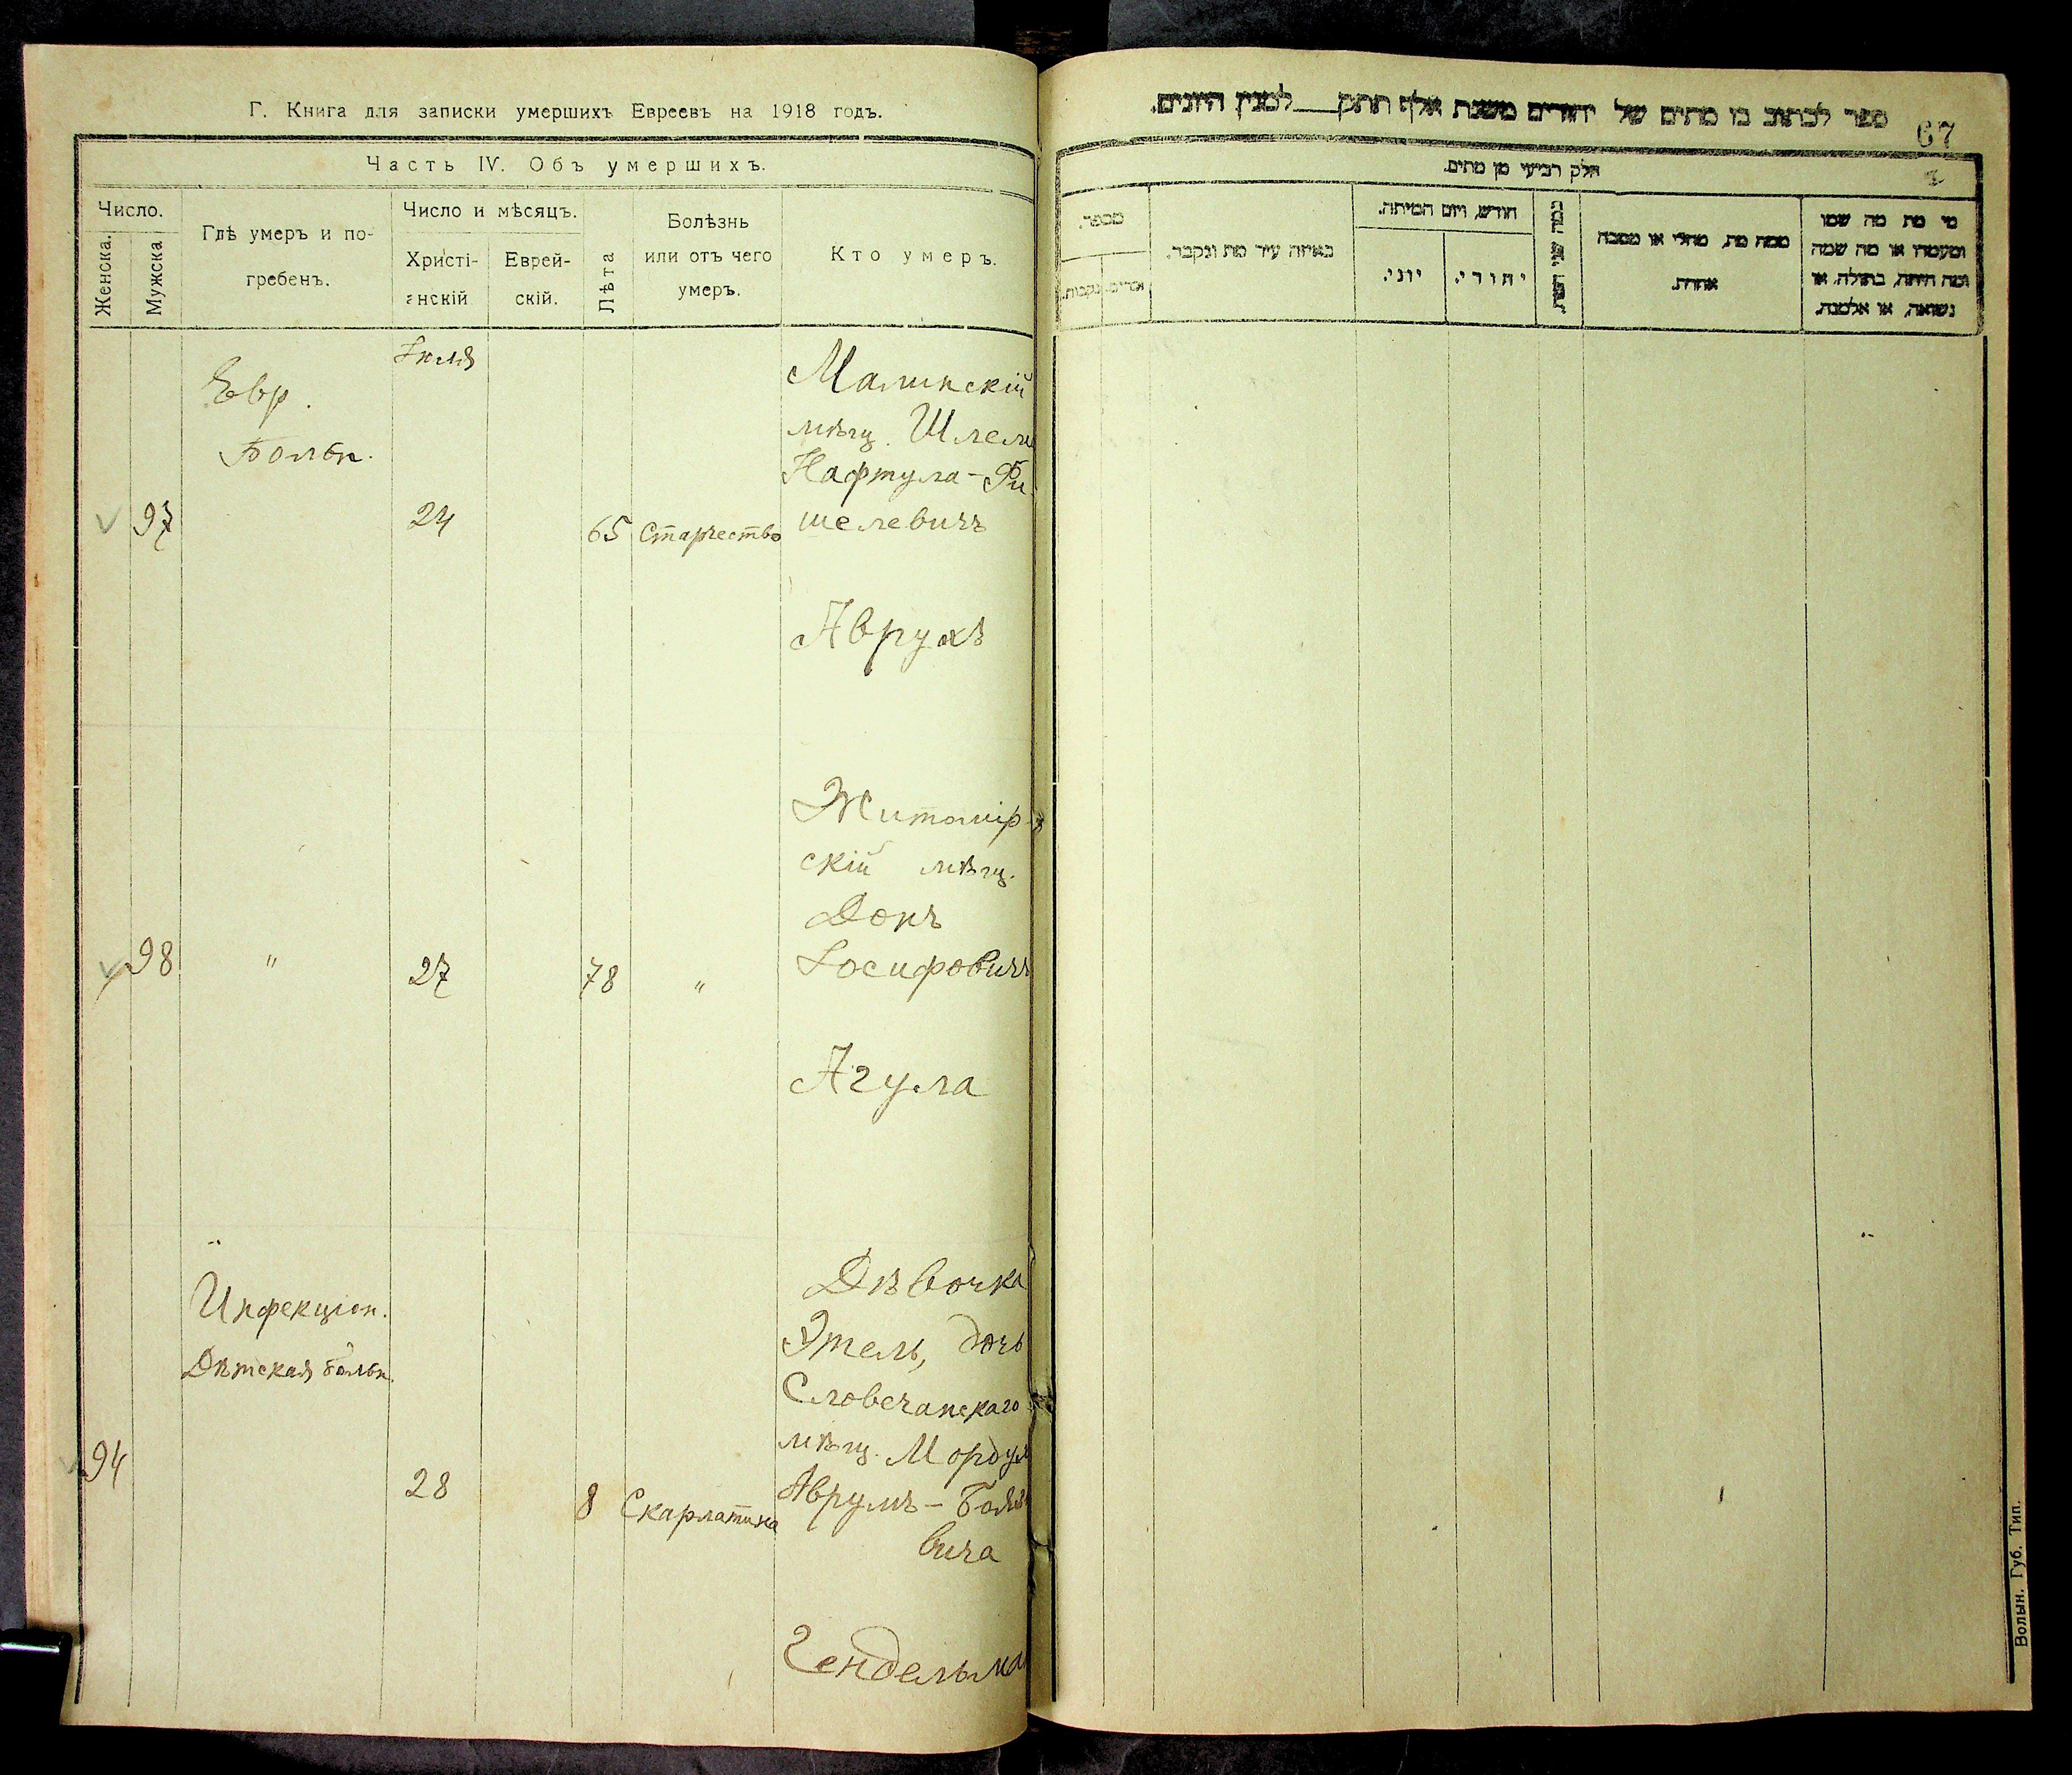 Г. Книга для записки умершихъ Евреевъ на 1918 годъ.
Часть IV. Объ умершихъ.
Число.
Женска.
Мужска
Гдѣ умеръ и по-
гребенъ.
Число и мѣсяцъ.
Христі-
анскій
Еврей-
скій.
Лѣта
Болѣзнь
или отъ чего
умеръ.
Кто умеръ.
Іюля
Евр.
Больн.
97
24
65
Старчество
Малинскій
мѣщ.
Нафтула-Фи
шелевичъ
Аврухъ
98
"
27
78
"
Житомір-
скій мѣщ.
Донъ
Іосифовичъ
Агула
Инфекціон.
Дѣтская больн.
94
28
8
Скарлатина
Дѣвочка
Этель, дочь
Словечанскаго
мѣщ.
Аврумъ-
вича
Гендельман
ספר לכתוב בו מתים של יהודים משנת אלף תתק למנין היונים.
67
חלק רביעי מן מתים.
מספר.
נקבות.
באיזה עיר מת ונקבר.
חודש, ויום המיתה.
יוני.
יהודי.
כמה שני
ממה מת, מחלי או מסבה
אחרת.
מי מת מה שמו
ומעמדו או מה שמה
ומה היתה, בתולה, או
נשואה, או אלמנה.
Волын. Губ. Тип.